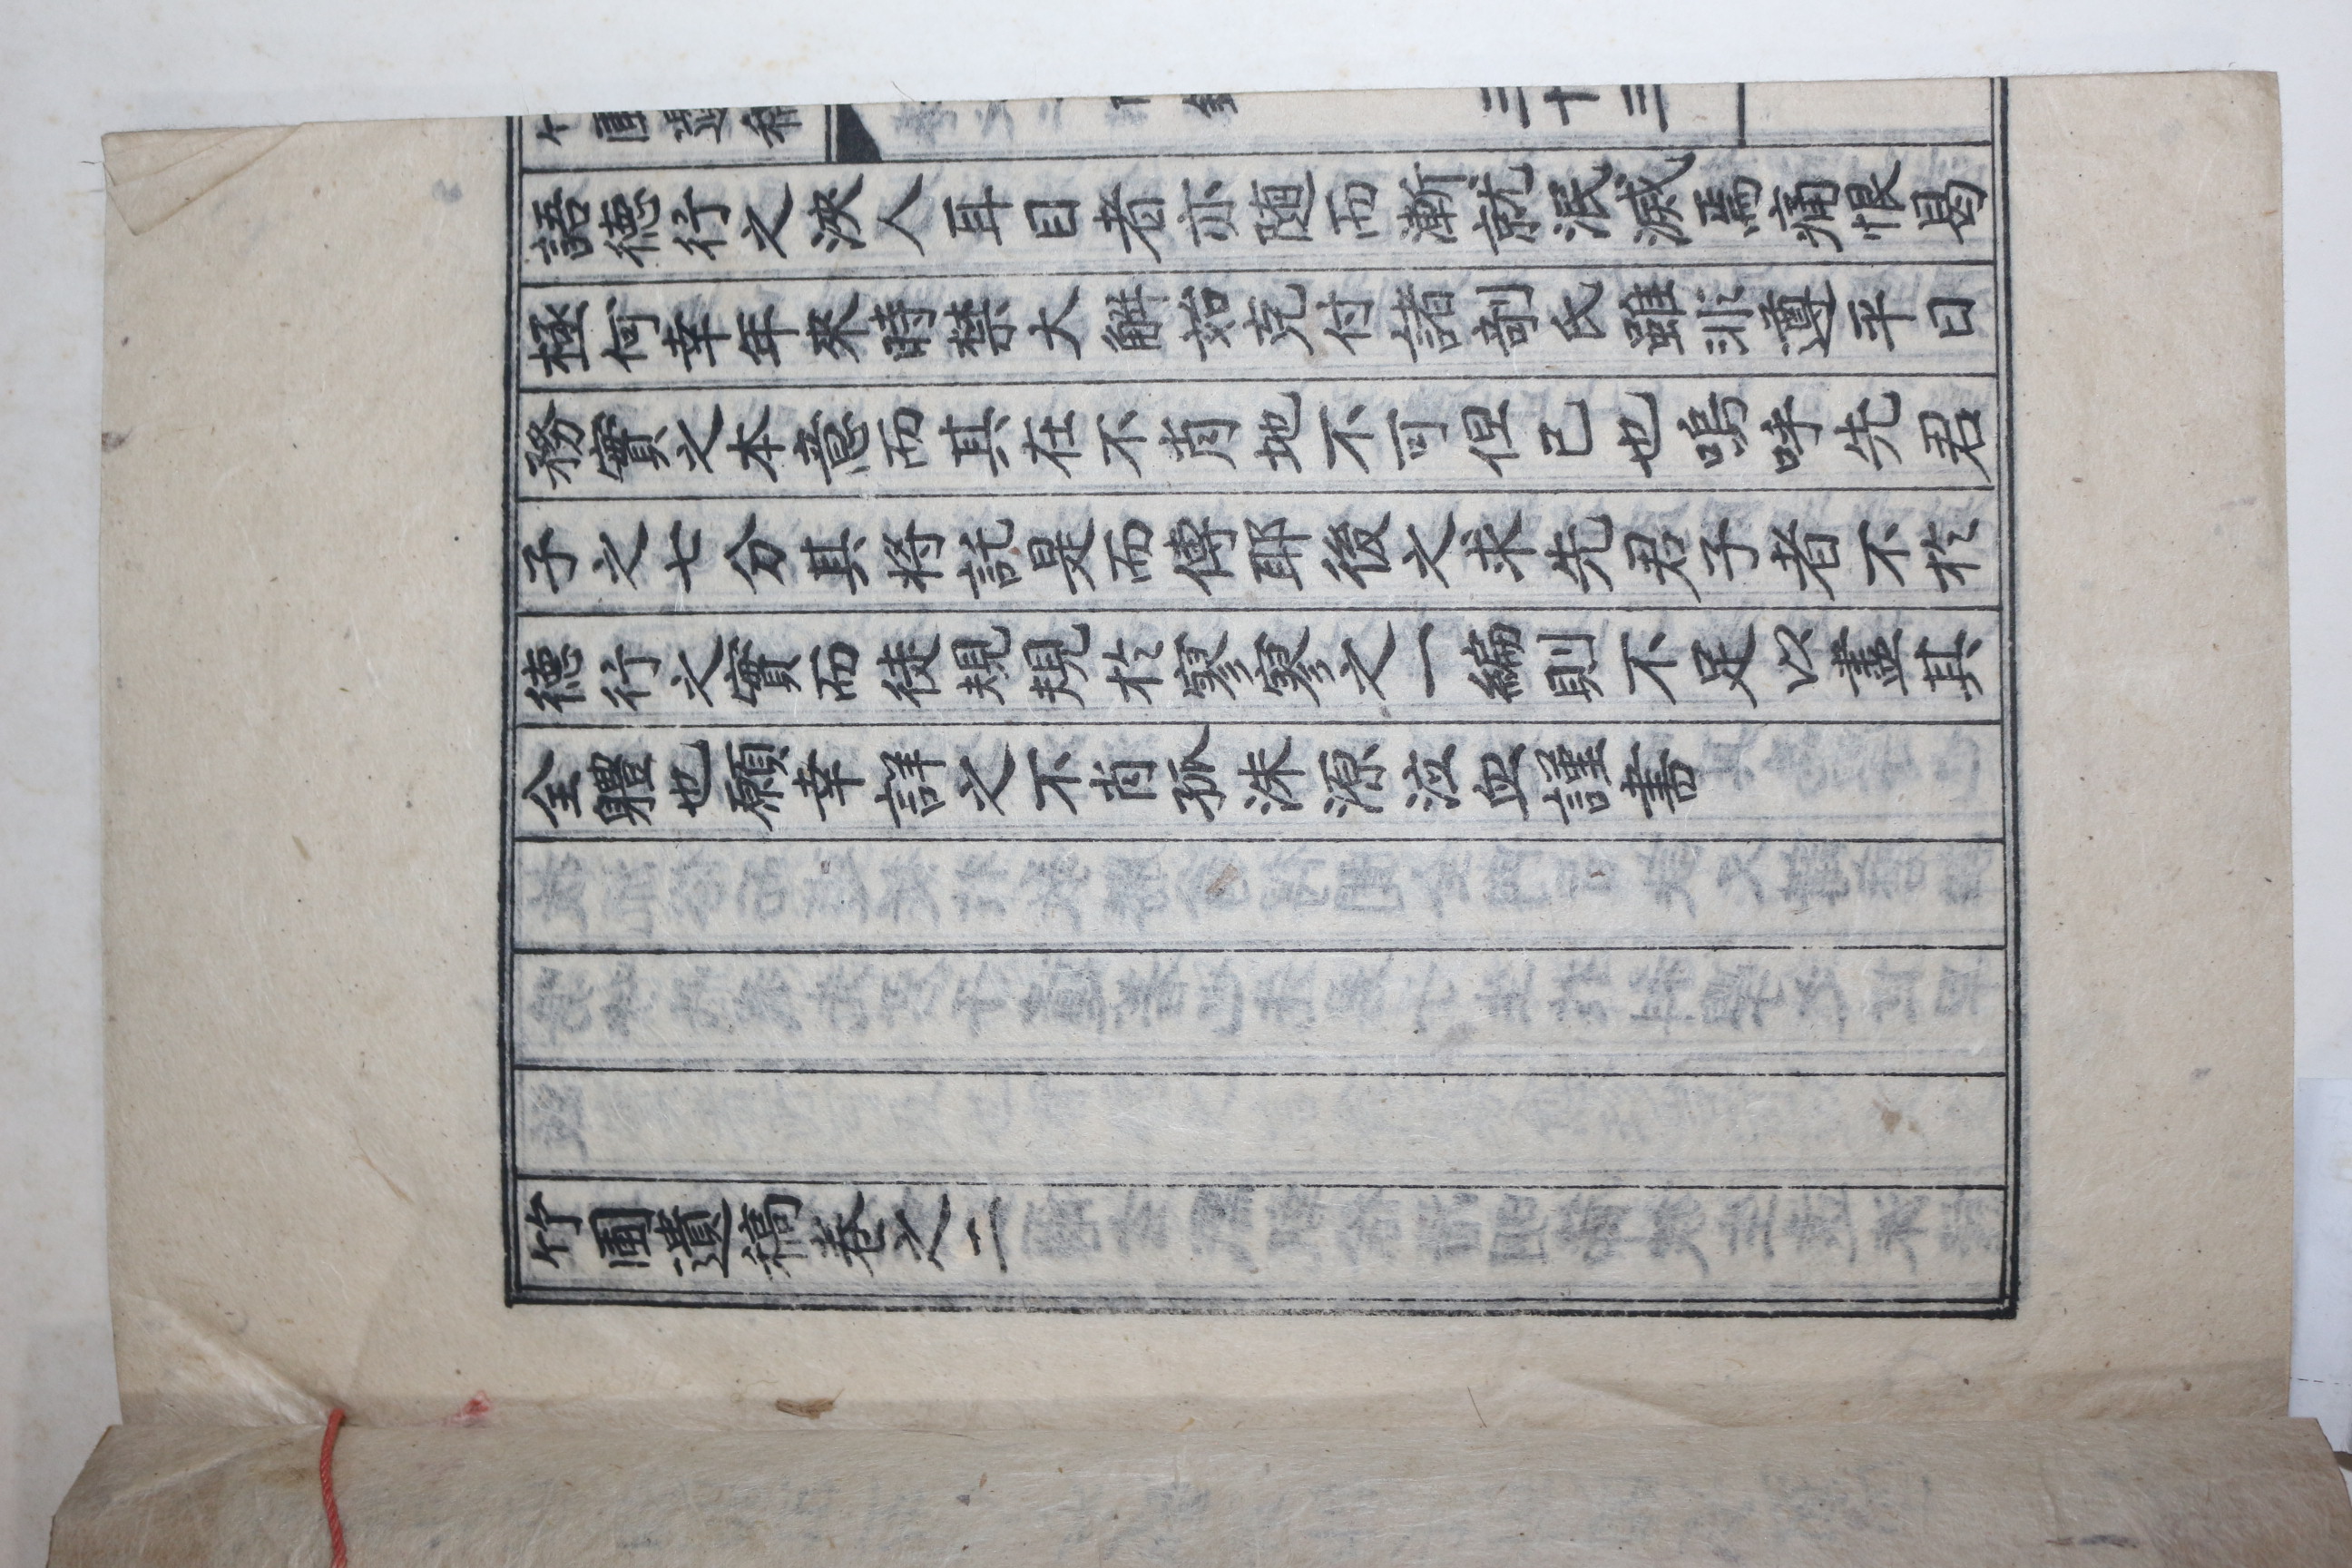 語德行之浹人耳目者亦随而漸就泯滅焉痛恨曷
極何幸年來時禁大解始克付諸剞氏雖非遵平日
務實之本意而其在不肖地不可但已也嗚呼先君
子之七分其將託是而傳耶後之求先君子者不於
德行之實而徒規規於寥寥之一編則不足以盡其
全體也願幸詳之不肖孤洙源泣血謹書
竹圃遺稿卷之二
三十三